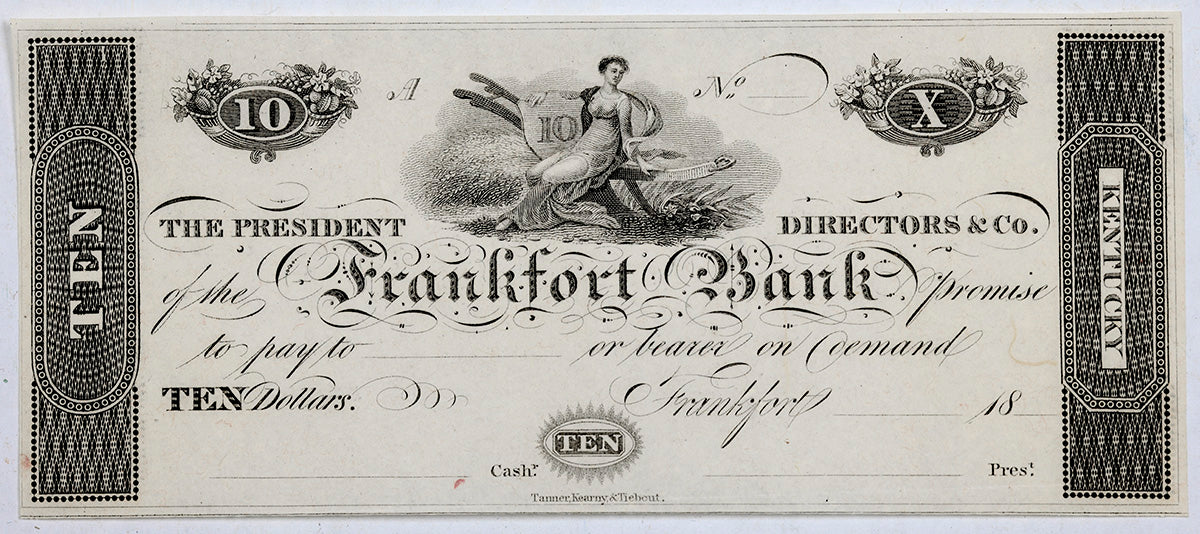 10 A 10 No. X
THE PRESIDENT DIRECTORS & Co.
of the Frankfort Bank Promise
to pay to or bearer on demand
TEN Dollars. Frankfort 18
TEN
Cashr. Prest.
Tanner, Kearny, & Tiebout.
TEN
KENTUCKY